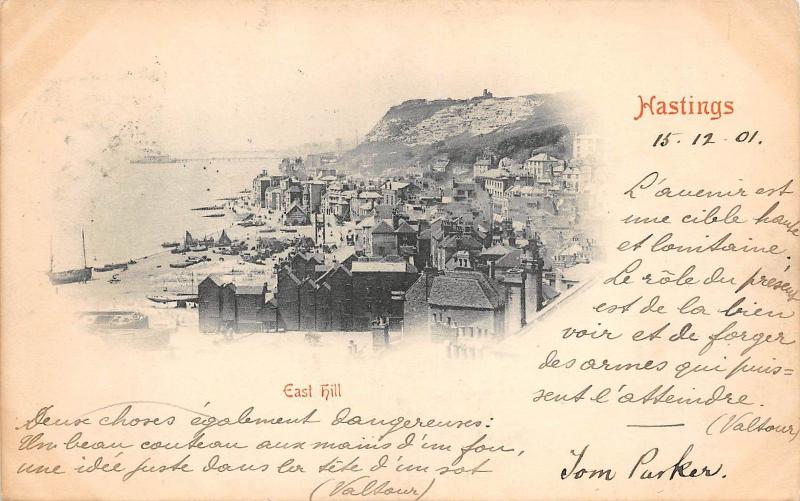 Hastings
15.12.01.
L'avenir est
une cible haute
et lointaine.
Le rôle du présent
est de la bien
voir et de forger
des armes qui puis=
sent l'atteindre.
(Valtour)
East Hill
Deux choses également dangereuses:
Un beau couteau aux mains d'un fou,
une idée juste dans la tête d'un sot
(Valtour)
Tom Parker.